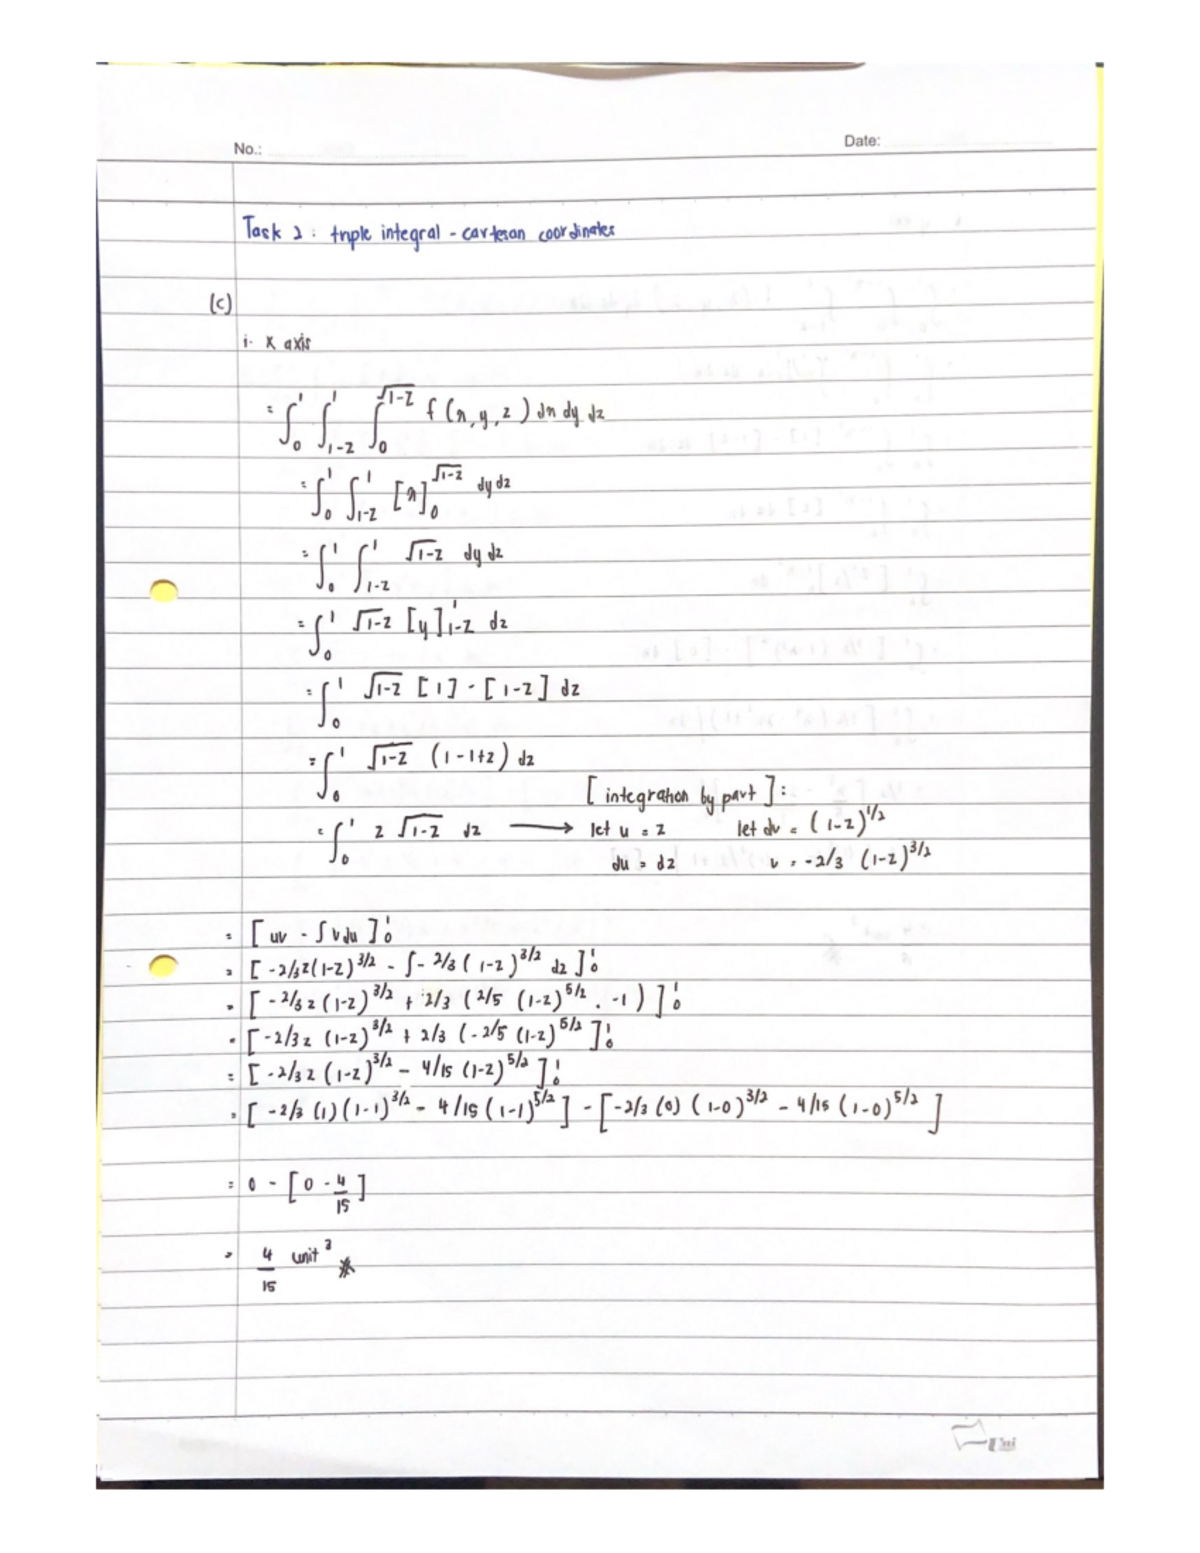 No.:
Date:
Task 2 : triple integral - cartesan coordinates
(c)
i- x axis
= ∫₀¹ ∫₁₋z¹ ∫₀^√(1-z) f(x, y, z) dx dy dz
= ∫₀¹ ∫₁₋z¹ [x]₀^√(1-z) dy dz
= ∫₀¹ ∫₁₋z¹ √(1-z) dy dz
= ∫₀¹ √(1-z) [y]¹₁₋z dz
= ∫₀¹ √(1-z) [1] - [1-z] dz
= ∫₀¹ √(1-z) (1-1+z) dz
[ integration by part ] :
= ∫₀¹ z √(1-z) dz → let u = z let dv = (1-z)^1/2
du = dz v = -2/3 (1-z)^3/2
= [ uv - ∫ v du ]₀¹
= [ -2/3z(1-z)^3/2 - ∫ - 2/3 (1-z)^3/2 dz ]₀¹
= [ -2/3 z (1-z)^3/2 + 2/3 ( 2/5 (1-z)^5/2 . -1 ) ]₀¹
= [ -2/3 z (1-z)^3/2 + 2/3 ( -2/5 (1-z)^5/2 ]₀¹
= [ -2/3 z (1-z)^3/2 - 4/15 (1-z)^5/2 ]₀¹
= [ -2/3 (1) (1-1)^3/2 - 4/15 (1-1)^5/2 ] - [ -2/3 (0) (1-0)^3/2 - 4/15 (1-0)^5/2 ]
= 0 - [ 0 - 4/15 ]
= 4/15 unit³